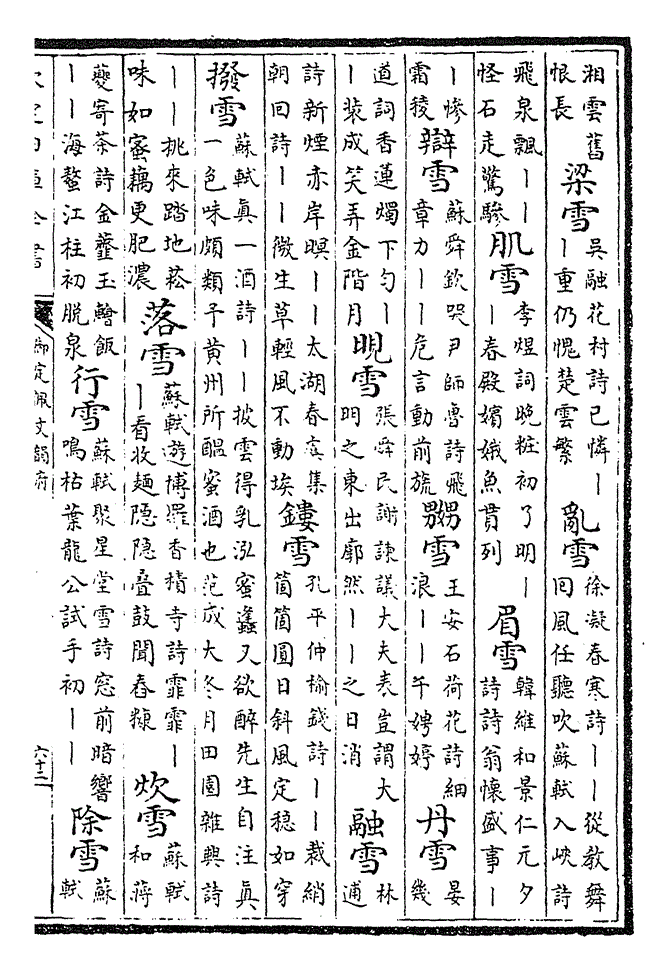 湘雲舊恨長 梁雪 吳融花村詩已憐｜｜重仍愧楚雲繁 亂雪 徐凝春寒詩｜｜從教舞囘風任聽吹蘇軾入峽詩
飛泉飄｜｜怪石走驚驂 肌雪 李煜詞晚粧初了明｜｜春殿嬪娥魚貫列 眉雪 韓維和景仁元夕詩詩翁懷盛事｜
｜慘霜稜 辯雪 蘇舜欽哭尹師魯詩飛章力｜｜危言動前旒 嬲雪 王安石荷花詩細浪｜｜千娉婷 丹雪 晏幾
道詞香蓮燭下勻｜｜裝成笑弄金階月 晛雪 張舜民謝諫議大夫表豈謂大明之東出廓然｜｜之日消 融雪 林逋
詩新煙赤岸暝｜｜太湖春寇集朝回詩｜｜微生草輕風不動埃 鏤雪 孔平仲榆錢詩｜｜裁綃箇箇圓日斜風定穩如穿
撥雪 蘇軾眞一酒詩｜｜披雲得乳泓蜜蠭又欲醉先生自注眞一色味頗類予黃州所醞蜜酒也范成大冬月田園雜興詩
｜｜挑來踏地菘味如蜜藕更肥濃 落雪 蘇軾遊博羅香積寺詩霏霏｜｜看收麵隠隠疊鼓聞舂糠 炊雪 蘇軾和蔣
夔寄茶詩金虀玉鱠飯｜｜海鰲江柱初脫泉 行雪 蘇軾聚星堂雪詩窓前暗響鳴枯葉龍公試手初｜｜ 除雪 蘇軾
欽定四庫全書 御定佩文韻府 六十二